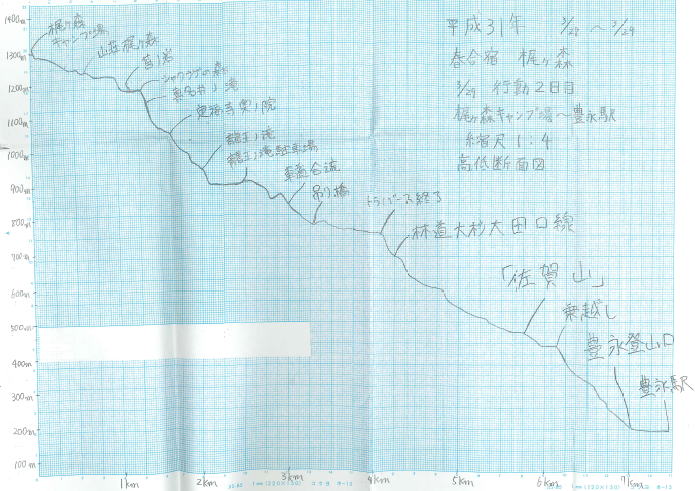 平成31年 3/28 ~ 3/29
春合宿 梶ヶ森
3/29 行動2日目
梶ヶ森キャンプ場~豊永駅
縮尺 1:4
高低断面図
梶ヶ森
キャンプ場
山荘梶ヶ森
シャクナゲの森
真名井ノ滝
定福寺奥ノ院
龍王ノ滝
龍王ノ滝駐車場
車道合流
吊り橋
トラバース終了
林道大杉大田口線
「佐賀山」
乗越し
豊永登山口
豊永駅
1400m
1300m
1200m
1100m
1000m
900m
800m
700m
600m
500m
400m
300m
200m
100m
1km
2km
3km
4km
5km
6km
7km
1mm(220×130) コクヨ ホ-13
1mm(220×130) コクヨ ホ-13